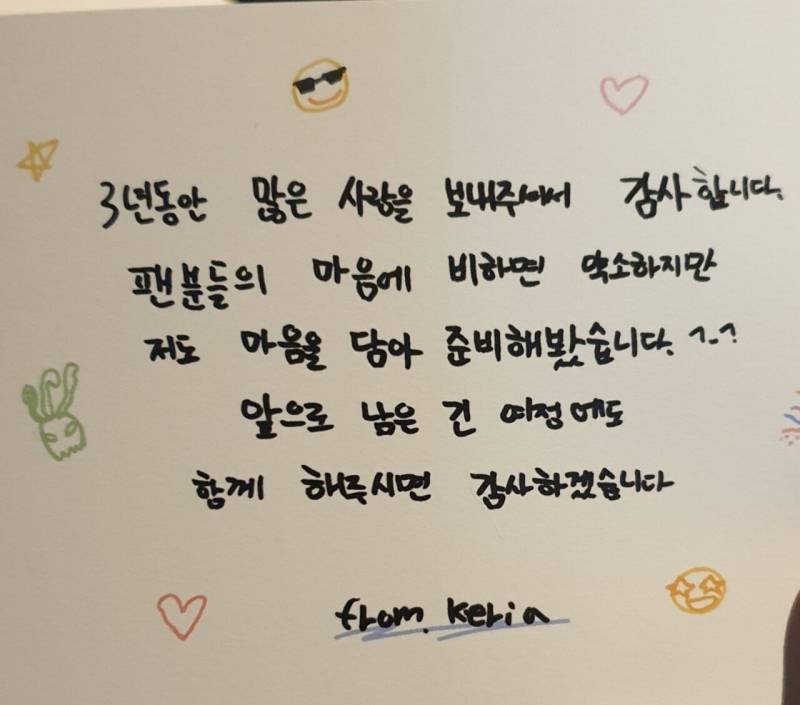 3년동안 많은 사랑을 보내주셔서 감사합니다.
팬분들의 마음에 비하면 약소하지만
저도 마음을 담아 준비해봤습니다. ^-^
앞으로 남은 긴 여정에도
함께 해주시면 감사하겠습니다
from. Keria